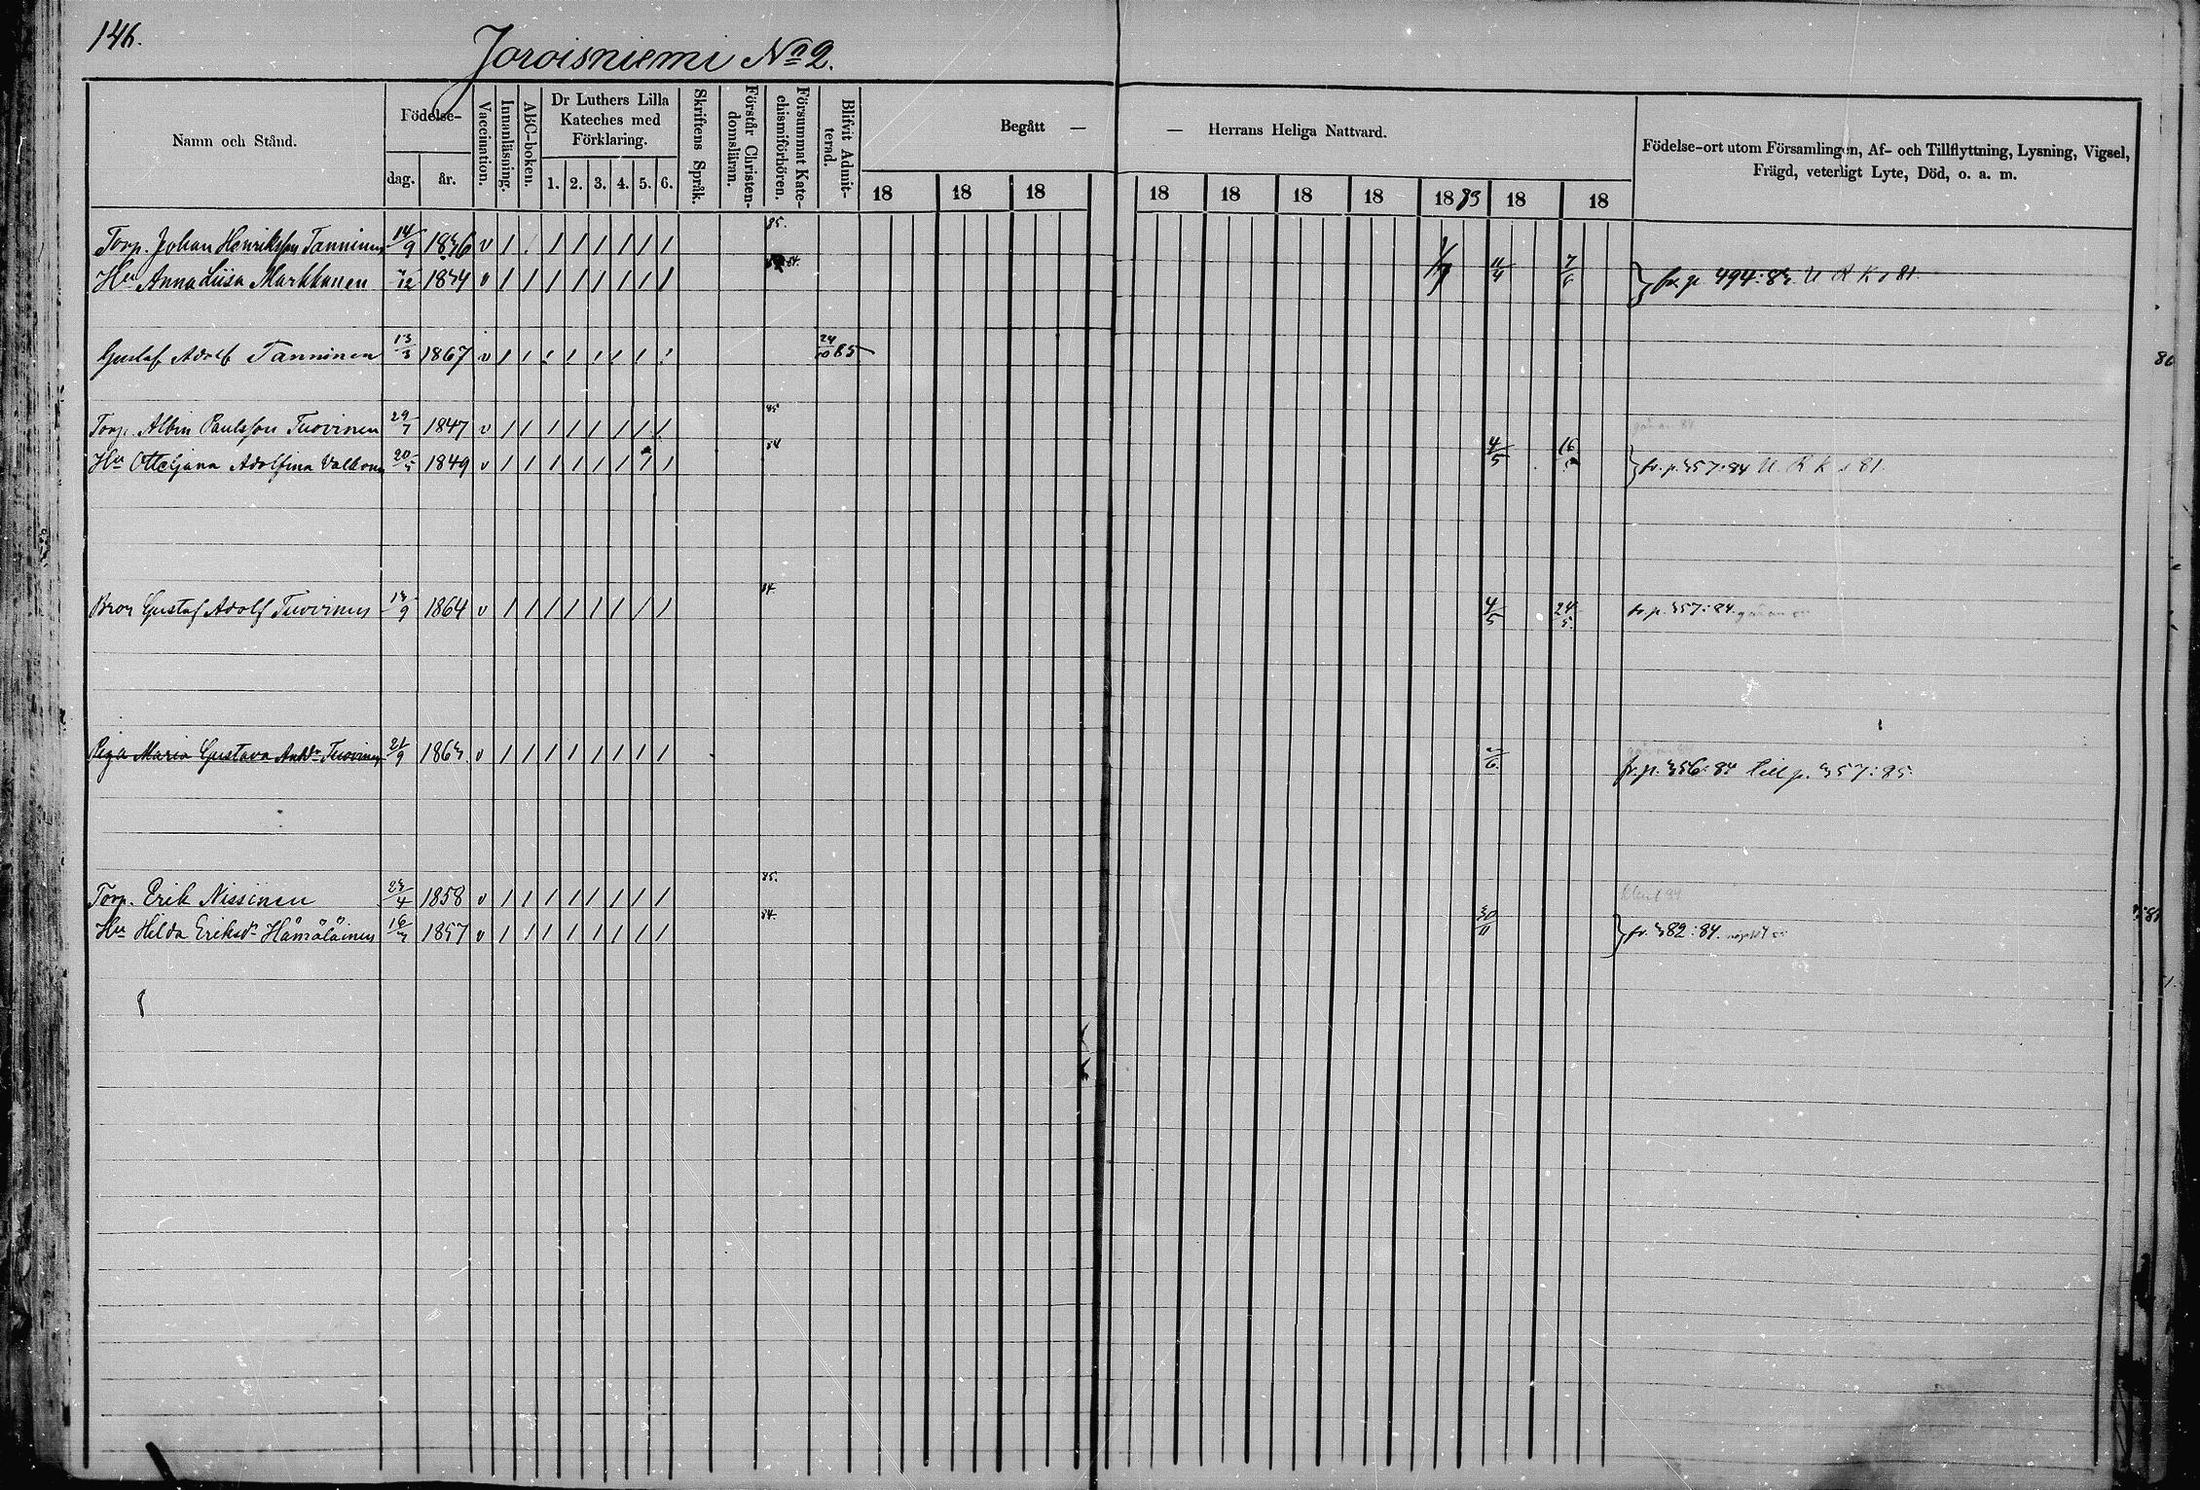 146.
Joroisniemi No 2.
Namn och Stånd.
Födelse-
dag.
år.
Vaccination.
Innanläsning.
ABC-boken.
Dr Luthers Lilla
Kateches med
Förklaring.
1. 2. 3. 4. 5. 6.
Skriftens Språk.
Förstår Christen-
domsläran.
Försummat Kate-
chismiförhören.
Blifvit Admit-
terad.
Begått —
— Herrans Heliga Nattvard.
18 18 18 18 18 18 18 1883 18 18
Födelse-ort utom Församlingen, Af- och Tillflyttning, Lysning, Vigsel,
Frägd, veterligt Lyte, Död, o. a. m.
85.
Torp. Johan Henriksson Tanninen 14/9 1836 v / / / / / / / / /
Hu Anna Liisa Markkanen /12 1834 v / / / / / / / / / 84. 11/4 7/6 fr. p. 494:83. U R K s 81
Gustaf Adolf Tanninen 13/3 1867 v / / / / / / / / 24/10 85
85
Torp. Albin Paulsson Tuovinen 29/7 1847 v / / / / / / / / /
84
Hu Otteljana Adolfina Valkonen 20/5 1849 v / / / / / / / / 4/5 16/5 fr. p. 357:84 U. R K s 81.
84
Bror Gustaf Adolf Tuovinen 13/9 1864 v / / / / / / / / 4/5 24/5 fr. p. 357:84.
Piga Maria Gustava Andr Tuovinen 21/9 1863 v / / / / / / / / /6 fr. p. 356:84 till p. 357:85.
85.
Torp. Erik Nissinen 23/4 1858 v / / / / / / / /
84.
Hu Hilda Eriksdr Hämäläinen 16/3 1857 v / / / / / / / / 30/11 fr. 382:84.